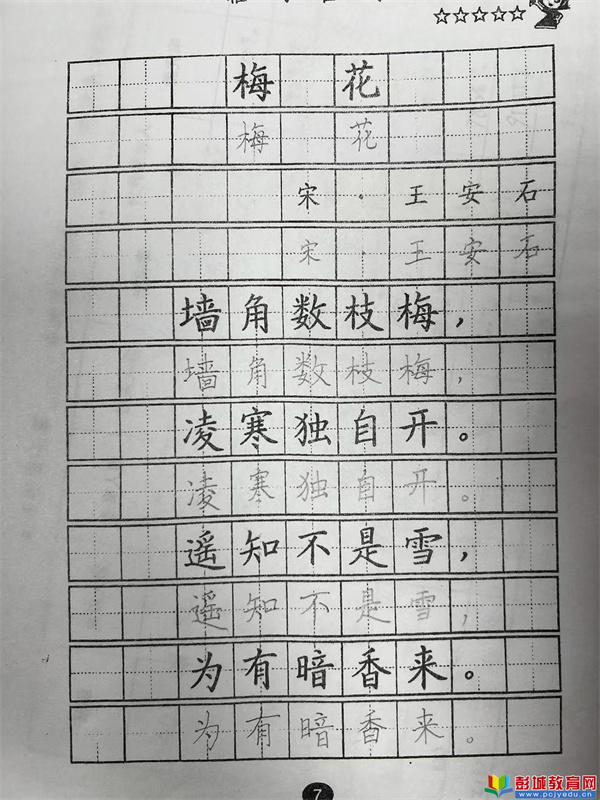 梅花
梅花
宋·王安石
宋·王安石
墙角数枝梅，
墙角数枝梅，
凌寒独自开。
凌寒独自开。
遥知不是雪，
遥知不是雪，
为有暗香来。
为有暗香来。
7
彭城教育网
www.pcjyedu.cn